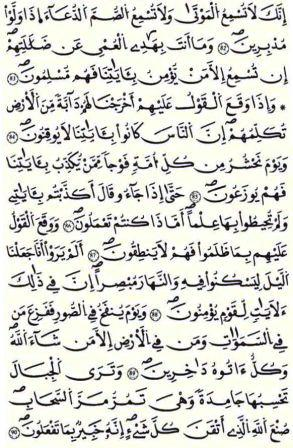 إِنَّكَ لَا تُسْمِعُ الْمَوْتَىٰ وَلَا تُسْمِعُ الصُّمَّ الدُّعَآءَ إِذَا وَلَّوْا۟
مُدْبِرِينَ ۝٨٠ وَمَآ أَنتَ بِهَٰدِى الْعُمْىِ عَن ضَلَٰلَتِهِمْ
إِن تُسْمِعُ إِلَّا مَن يُؤْمِنُ بِـَٔايَٰتِنَا فَهُم مُّسْلِمُونَ ۝٨١
* وَإِذَا وَقَعَ الْقَوْلُ عَلَيْهِمْ أَخْرَجْنَا لَهُمْ دَآبَّةً مِّنَ الْأَرْضِ
تُكَلِّمُهُمْ إِنَّ النَّاسَ كَانُوا۟ بِـَٔايَٰتِنَا لَا يُوقِنُونَ ۝٨٢
وَيَوْمَ نَحْشُرُ مِن كُلِّ أُمَّةٍ فَوْجًا مِّمَّن يُكَذِّبُ بِـَٔايَٰتِنَا
فَهُمْ يُوزَعُونَ ۝٨٣ حَتَّىٰٓ إِذَا جَآءُو قَالَ أَكَذَّبْتُم بِـَٔايَٰتِى
وَلَمْ تُحِيطُوا۟ بِهَا عِلْمًا أَمَّاذَا كُنتُمْ تَعْمَلُونَ ۝٨٤ وَوَقَعَ الْقَوْلُ
عَلَيْهِم بِمَا ظَلَمُوا۟ فَهُمْ لَا يَنطِقُونَ ۝٨٥ أَلَمْ يَرَوْا۟ أَنَّا جَعَلْنَا
الَّيْلَ لِيَسْكُنُوا۟ فِيهِ وَالنَّهَارَ مُبْصِرًا إِنَّ فِى ذَٰلِكَ
لَـَٔايَٰتٍ لِّقَوْمٍ يُؤْمِنُونَ ۝٨٦ وَيَوْمَ يُنفَخُ فِى الصُّورِ فَفَزِعَ مَن
فِى السَّمَٰوَٰتِ وَمَن فِى الْأَرْضِ إِلَّا مَن شَآءَ اللَّهُ
وَكُلٌّ أَتَوْهُ دَٰخِرِينَ ۝٨٧ وَتَرَى الْجِبَالَ
تَحْسِبُهَا جَامِدَةً وَهِىَ تَمُرُّ مَرَّ السَّحَابِ
صُنْعَ اللَّهِ الَّذِىٓ أَتْقَنَ كُلَّ شَىْءٍ إِنَّهُۥ خَبِيرٌۢ بِمَا تَفْعَلُونَ